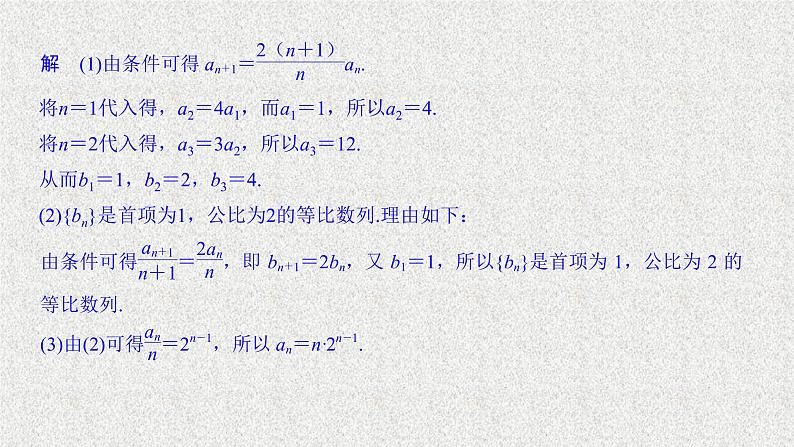 解　(1)由条件可得 aₙ₊₁＝2（n＋1）/n aₙ.
将n＝1代入得，a₂＝4a₁，而a₁＝1，所以a₂＝4.
将n＝2代入得，a₃＝3a₂，所以a₃＝12.
从而b₁＝1，b₂＝2，b₃＝4.
(2){bₙ}是首项为1，公比为2的等比数列.理由如下：
由条件可得aₙ₊₁/n＋1＝2aₙ/n，即 bₙ₊₁＝2bₙ，又 b₁＝1，所以{bₙ}是首项为 1，公比为 2 的
等比数列.
(3)由(2)可得aₙ/n＝2ⁿ⁻¹，所以 aₙ＝n·2ⁿ⁻¹.